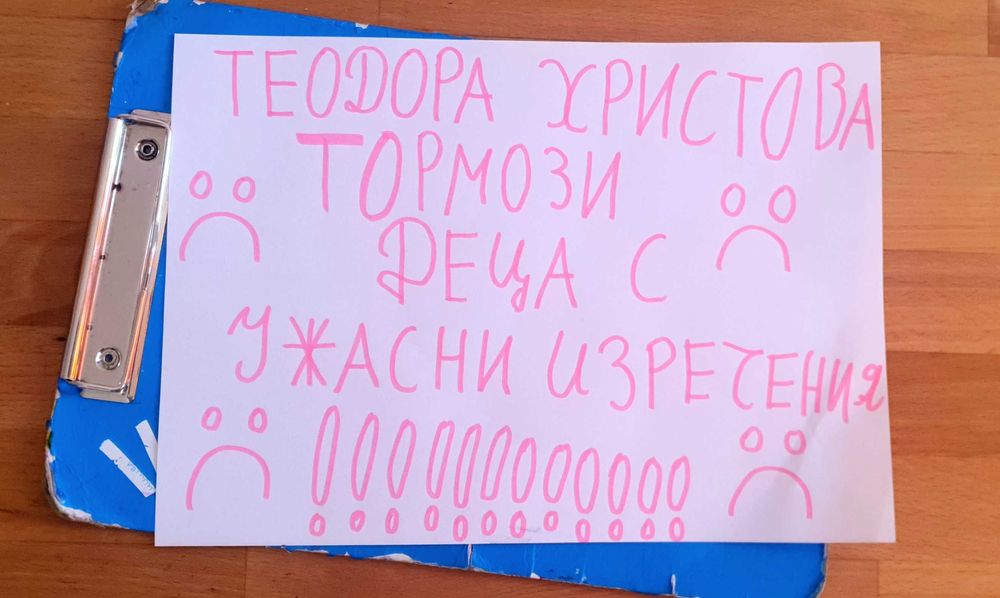 ТЕОДОРА ХРИСТОВА
ТОРМОЗИ
ДЕЦА С
УЖАСНИ ИЗРЕЧЕНИЯ
!!!!!!!!!!!!!